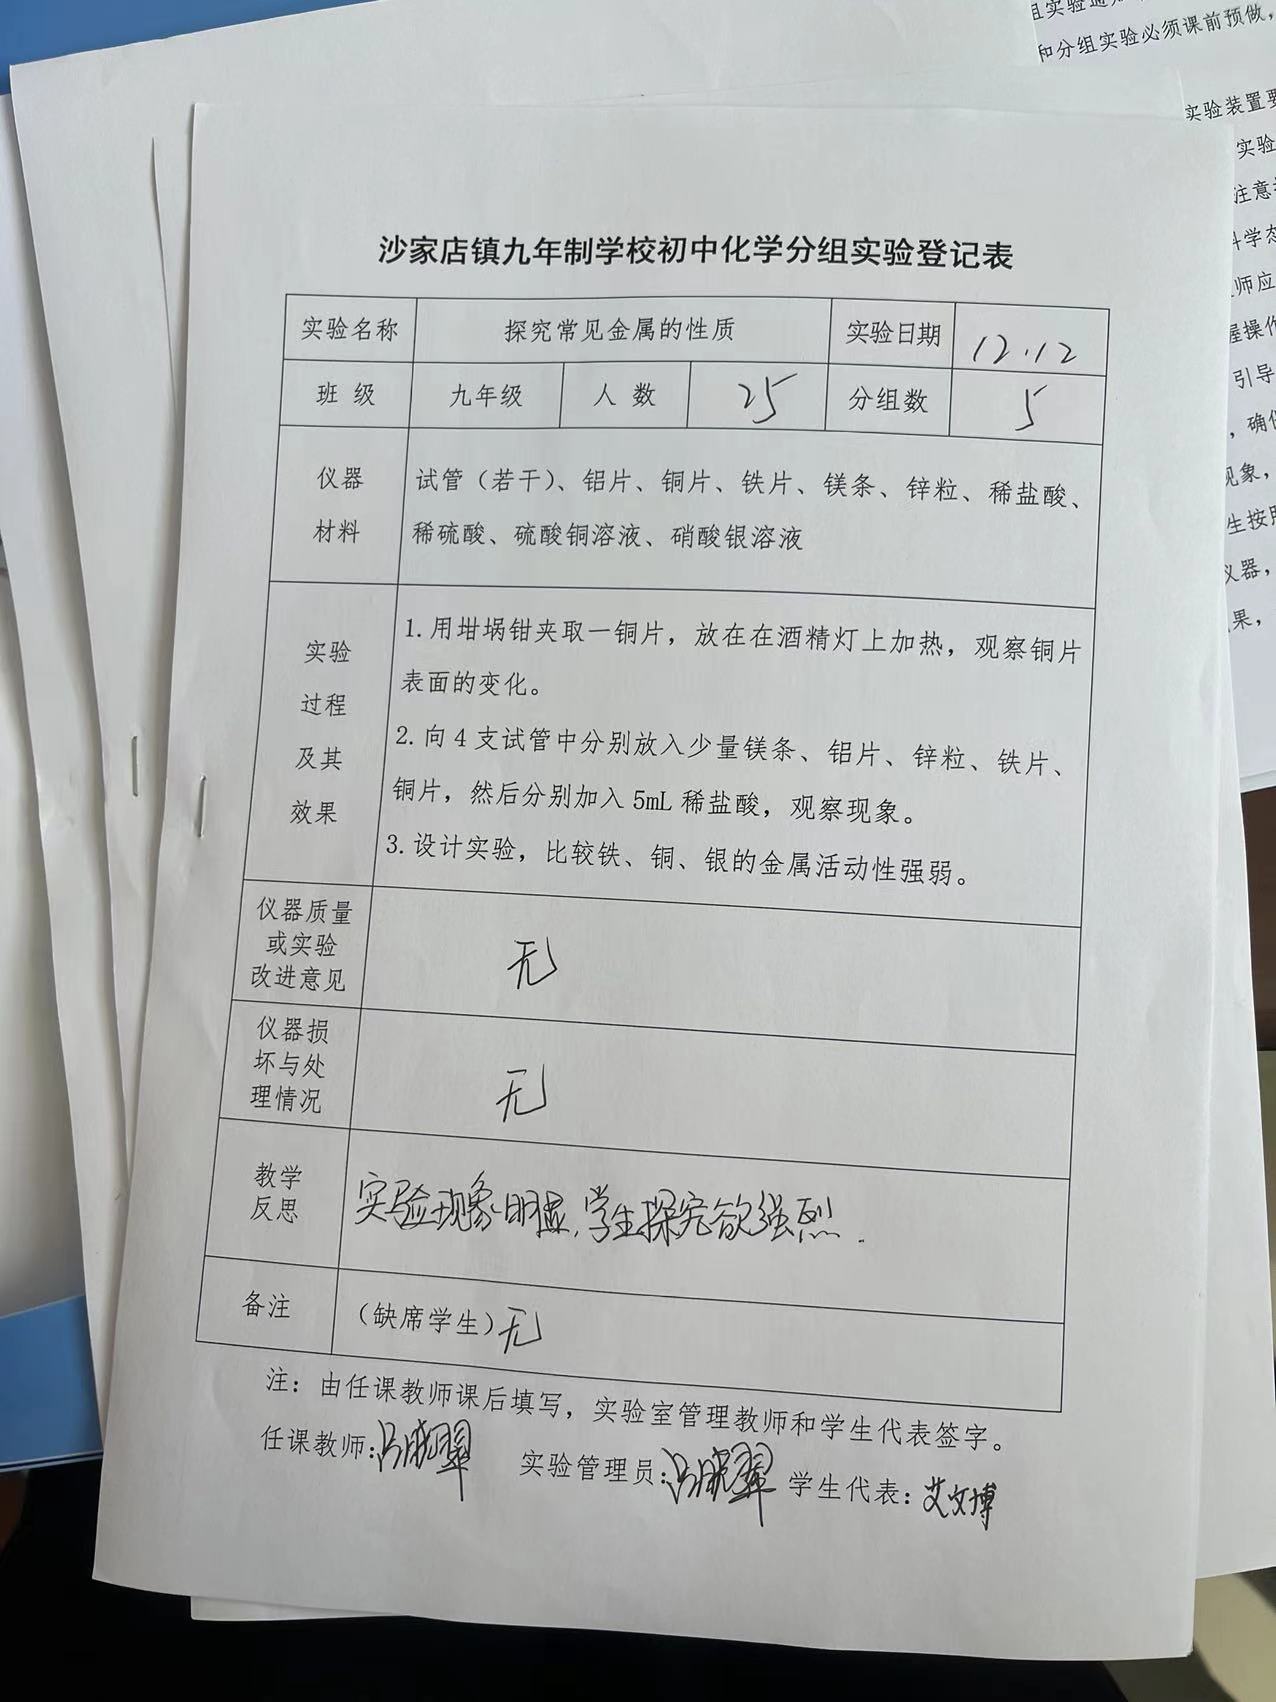 组实验通
和分组实验必须课前预做，
实验装置要
实验
注意
科学态
师应
握操作
引导
，确保
现象，
生按照
仪器，
果，
沙家店镇九年制学校初中化学分组实验登记表
实验名称 探究常见金属的性质 实验日期 12.12
班 级 九年级 人 数 25 分组数 5
仪器
材料
试管（若干）、铝片、铜片、铁片、镁条、锌粒、稀盐酸、
稀硫酸、硫酸铜溶液、硝酸银溶液
实验
过程
及其
效果
1.用坩埚钳夹取一铜片，放在在酒精灯上加热，观察铜片
表面的变化。
2.向4支试管中分别放入少量镁条、铝片、锌粒、铁片、
铜片，然后分别加入5mL稀盐酸，观察现象。
3.设计实验，比较铁、铜、银的金属活动性强弱。
仪器质量
或实验
改进意见
无
仪器损
坏与处
理情况
无
教学
反思
实验现象明显，学生探究欲强烈.
备注 （缺席学生）无
注：由任课教师课后填写，实验室管理教师和学生代表签字。
任课教师： 实验管理员： 学生代表：艾文博